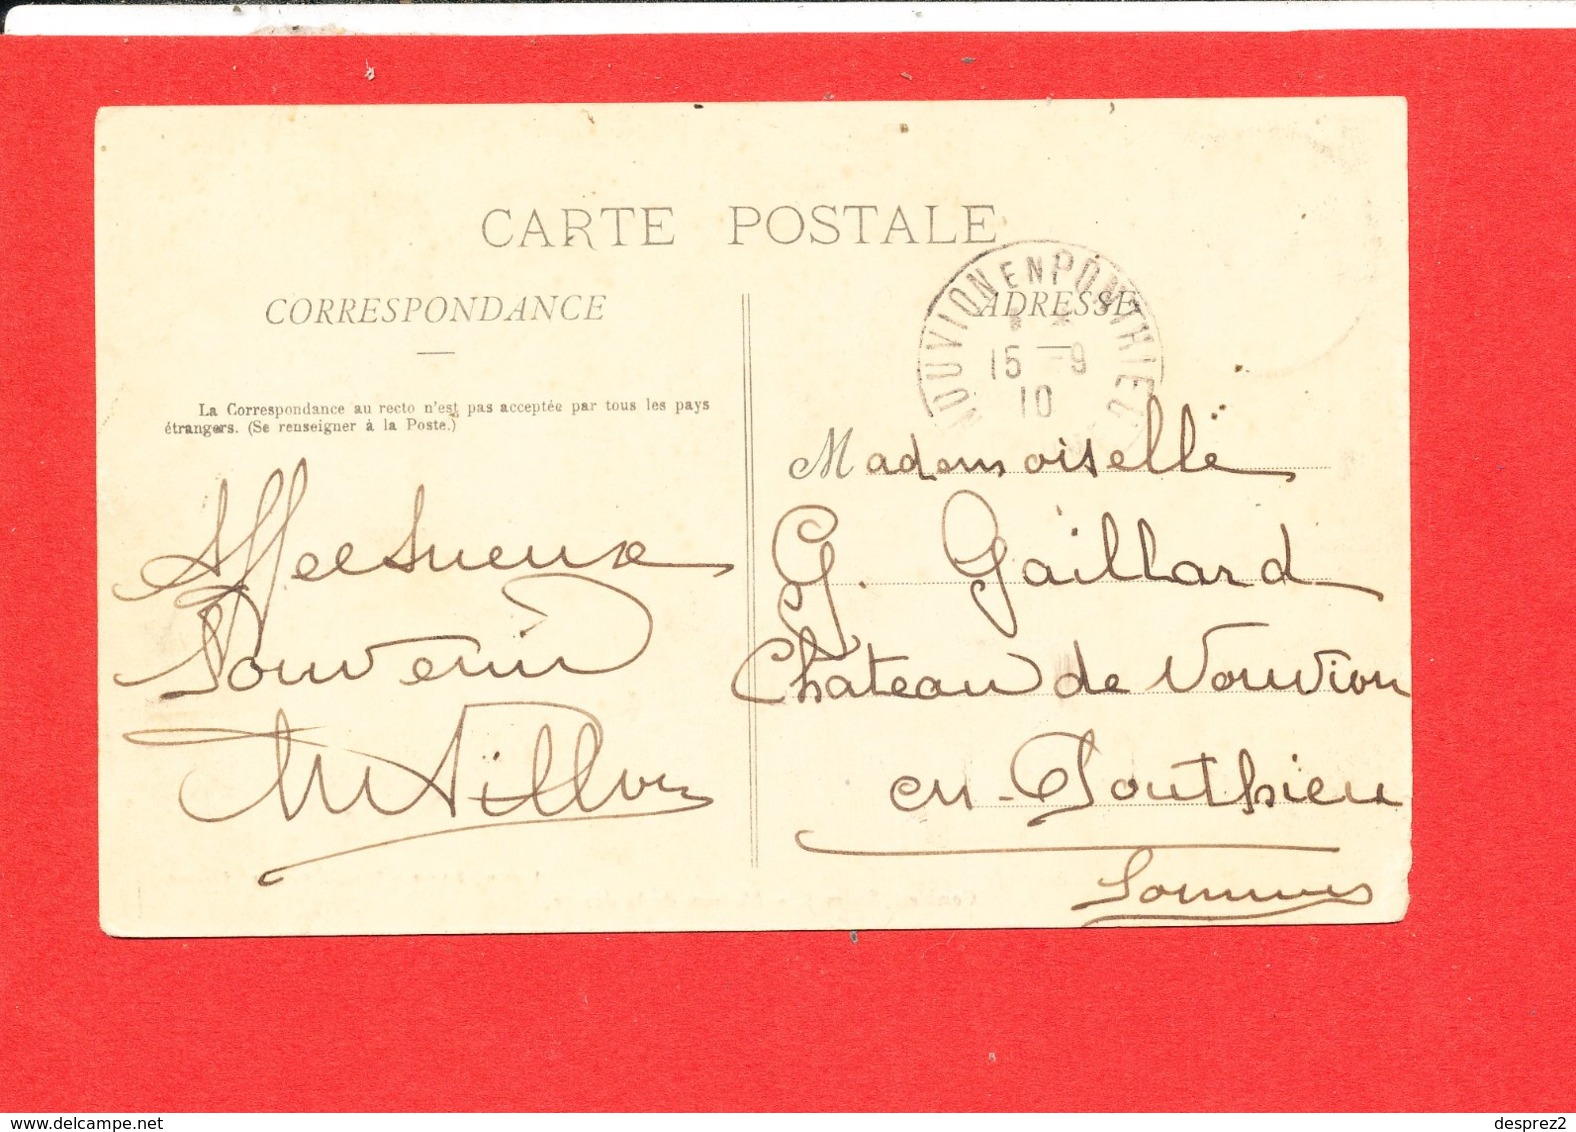 CARTE POSTALE
CORRESPONDANCE
ADRESSE
NOUVION EN PONTHIEU
15 - 9
10
La Correspondance au recto n'est pas acceptée par tous les pays
étrangers. (Se renseigner à la Poste.)
Affectueux
Souvenir
Mademoiselle
G. Gaillard
Chateau de Nouvion
en-Ponthieu
Somme
desprez2